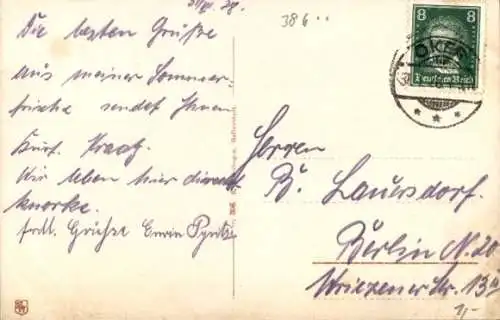 386..
Die besten Grüße
aus meiner Sommer-
frische sendet Ihnen
Kurt
Wir leben hier
knorke.
frdl. Grüße Erwin
8
Deutsches Reich
OKER
Herren
B. Lauersdorf.
Berlin N. 20
Wriezener Str. 13a
1,-